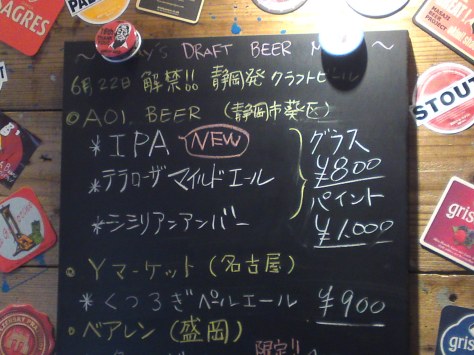 DRAFT BEER
6月22日 解禁!! 静岡発 クラフトビール
●AOI. BEER (静岡市葵区)
*IPA NEW
*テラローザ マイルドエール
*シミリアンアンバー
グラス
¥800
パイント
¥1.000
●Yマーケット(名古屋)
*くつろぎペールエール ¥900
●ベアレン(盛岡)
限定!!
STOUT
AGRES
gris
gris